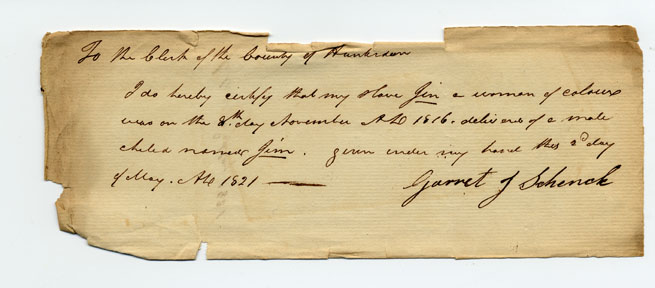 To the Clerk of the County of Hunterdon
I do hereby certify that my slave Jin a woman of colour
was on the 8th day November AD 1816. delivered of a male
child named Jim. given under my hand this 2d day
of May. AD 1821
Garret J Schenck